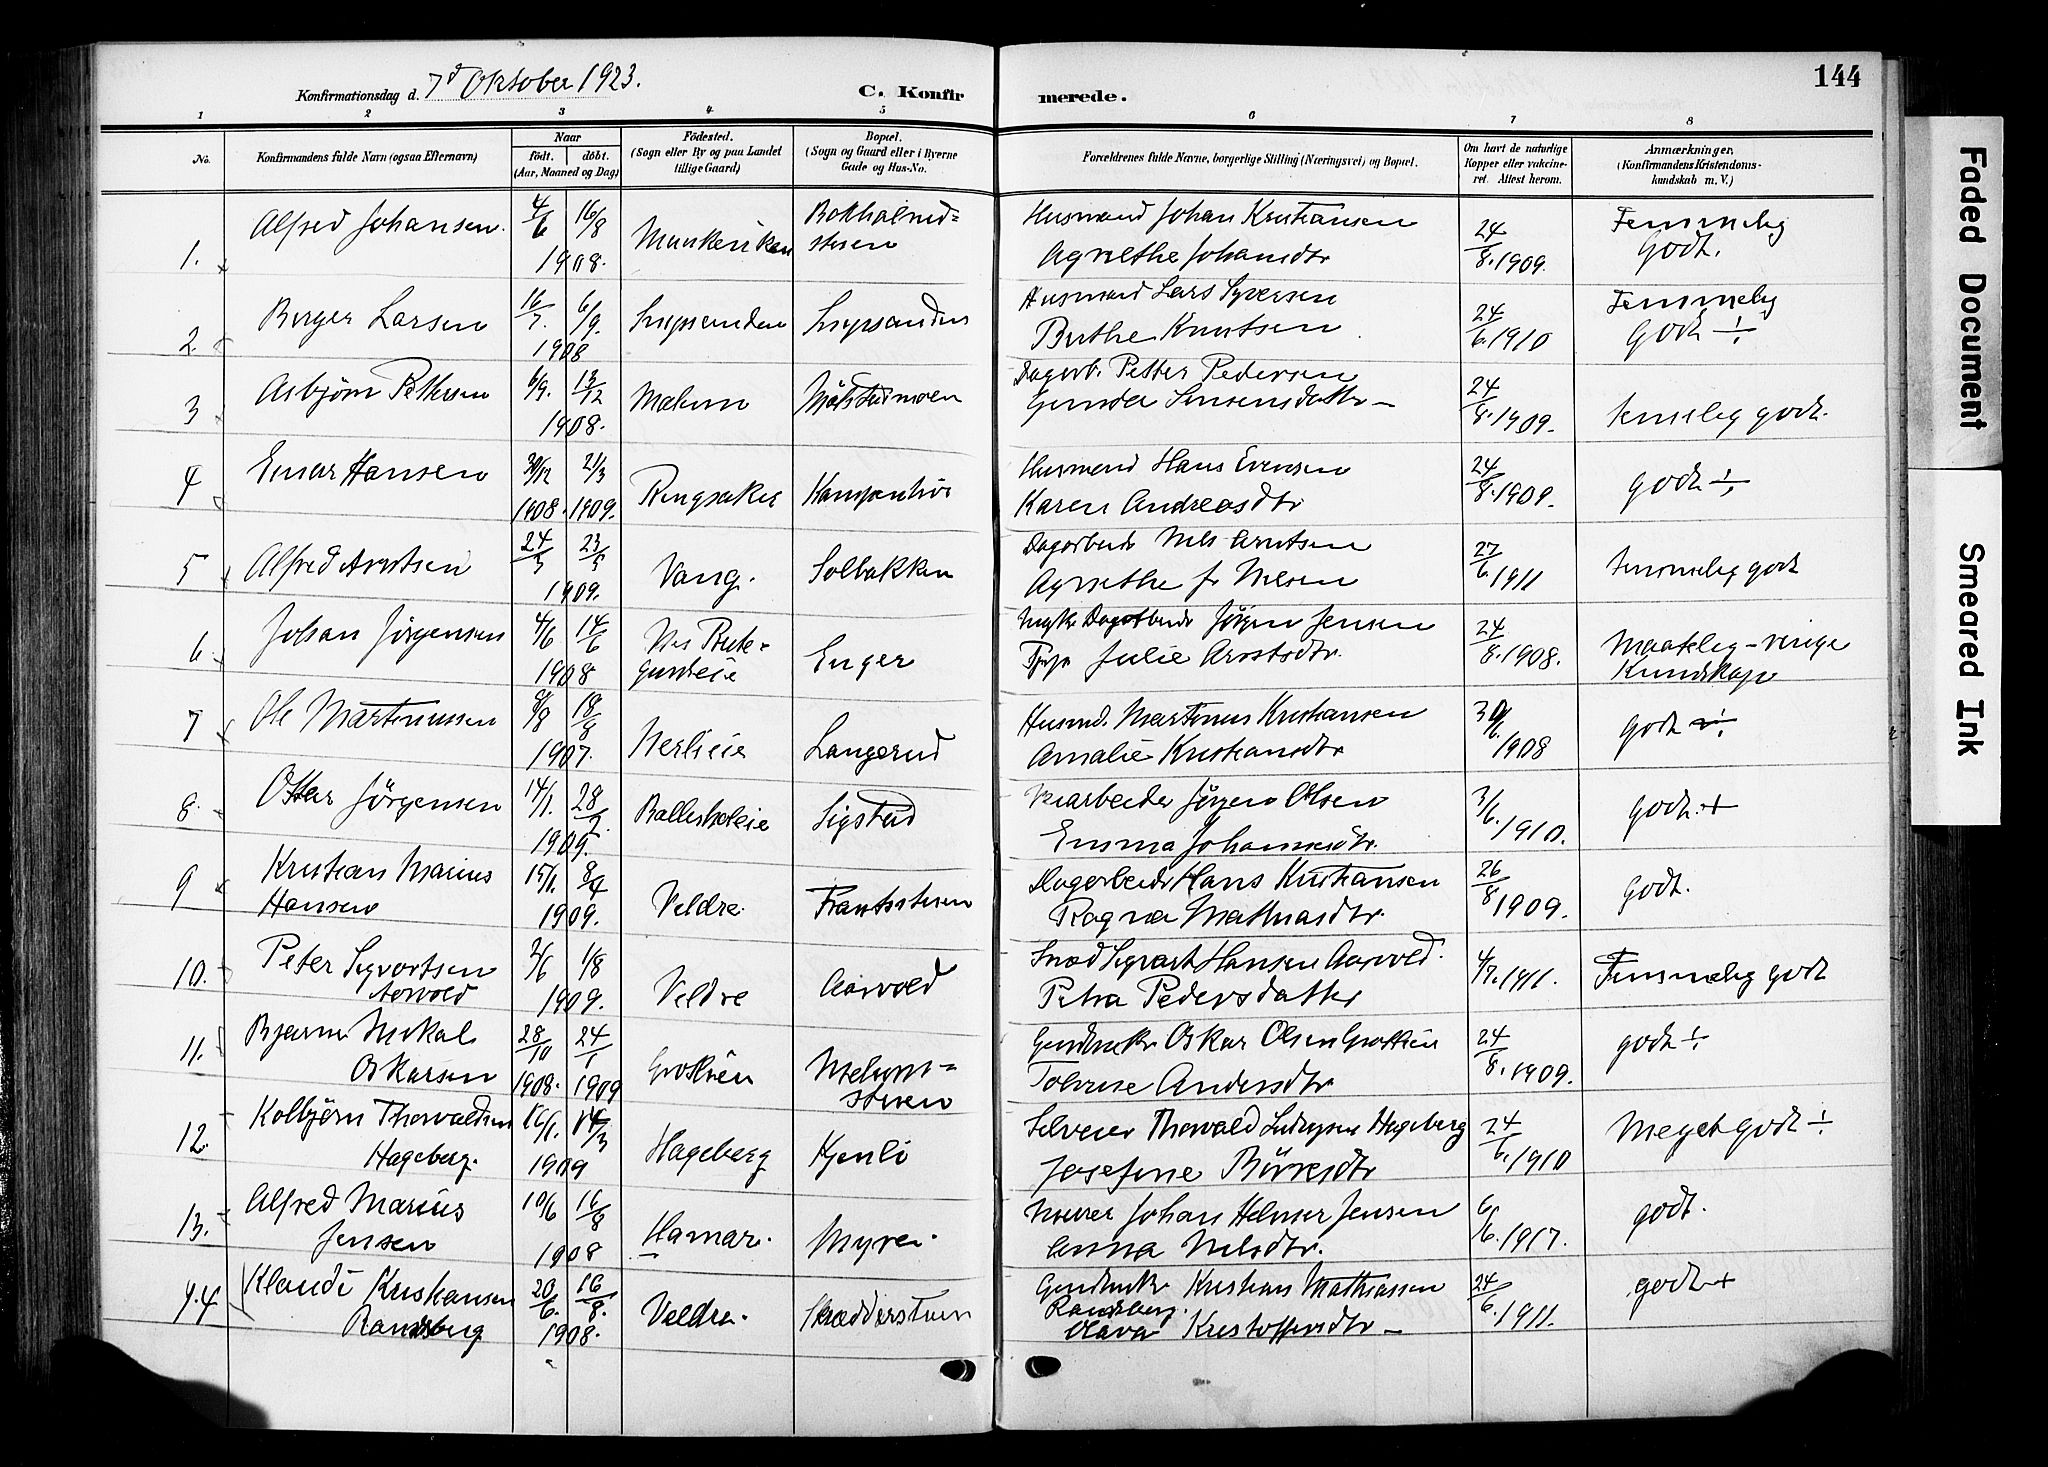 Konfirmationsdag d. 7d Oktober 1923.
C. Konfir
merede.
144
1 2 3 4 5 6 7 8
No.
Konfirmandens fulde Navn (ogsaa Efternavn)
Naar
født. døbt.
(Aar, Maaned og Dag)
Födested.
(Sogn eller By og paa Landet
tillige Gaard)
Bopæl.
(Sogn og Gaard eller i Byerne
Gade og Hus-No.
Forældrenes fulde Navne, borgerlige Stilling (Næringsvei) og Bopæl.
Om havt de naturlige
Kopper eller vakcine-
ret. Attest herom.
Anmærkninger,
(Konfirmandens Kristendoms-
kundskab m. V.)
1. Alfred Johansen. 4/6 16/8 1908.
Husmand Johan Kristiansen
Agnethe Johansdtr
24/8. 1909.
Temmelig
Godt.
2. Birger Larsen 16/7. 6/9. 1908
Husmand Lars Syversen
Berthe Knutsen
24/6. 1910
Temmelig
godt ÷
3 Asbjørn Pettersen 6/9. 13/12 1908.
Dagarb. Petter Pedersen
24/8. 1909.
temelig godt.
4 Einar Hansen 30/12 1908. 21/3 1909.
Ringsaker
Husmand Hans Evensen
Karen Andreasdtr
24/8. 1909.
godt ÷
5 Alfred Arntsen 24/3 23/5 1909.
Vang. Solbakken
Dagarbeider Nils Arntsen
Agnethe f. Nilsen
27/6. 1911
temmelig godt
6. Johan Jørgensen 4/6 14/6 1908
Enger
Dagarbeider Jørgen Jensen
Julie Arntsdtr.
24/8. 1908.
Maatelig - ringe
Kundskap
7 Ole Martinussen 18/8 1907.
Nerlieie Langerud
Husmd. Martinus Kristiansen
Amalie Kristiansdtr
1908
godt ÷
8. Ottar Jørgensen 14/1. 28/2. 1909.
Sigstad
Jørgen Olsen
Emma Johannesdtr.
3/6. 1910.
godt. +
9 Kristian Marius
Hansen
15/1. 8/4 1909.
Veldre. Frantsstuen
Dagarbeider Hans Kristiansen
Ragna Mathiasdtr.
26/8 1909.
godt.
10. Peter Sigvartsen
Aasvold
1/8 1909.
Veldre Aasvold
Sigvart Hansen Aasvold.
Petra Pedersdatter
4/7. 1911.
Temmelig godt
11. Bjarne Mikal
Oskarsen
28/10 1908. 24/1 1909
Grotlien
Oskar Olsen Grotlien
Andersdtr
24/8. 1909.
godt ÷
12. Kolbjørn Thorvaldsen
Hageberg.
16/1. 14/3 1909
Hageberg Kjenli
Selveier Thorvald Ludvigsen Hageberg
Josefine Børresdtr
24/6. 1910
Meget godt ÷
13. Alfred Marius
Jensen
10/6 16/8 1908
Hamar. Myren.
Murer Johan Helmer Jensen
Anna Nilsdtr.
6/6. 1917.
godt.
14 Klaudi Kristiansen
Randsberg
20/6. 16/8. 1908.
Veldre. Skrædderstuen
Kristian Mathiassen
Randsberg.
Olava Kristoffersdtr -
24/6. 1911.
godt +
Faded Document
Smeared Ink